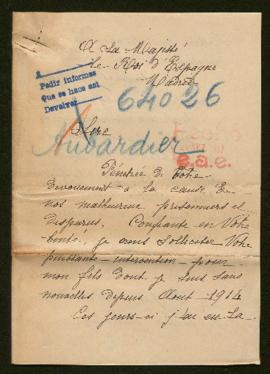 A Sa Majesté
le Roi d'Espagne
Madrid
Pedir informes
que se hace asi
Devolver
64026
Sire
Aubardier
e.a.e.
Pénétrée de Votre
dévouement à la cause de
nos malheureux prisonniers et
disparus, Confiante en Votre
bonté, je viens solliciter Votre
puissante intervention pour
mon fils dont je suis sans
nouvelles depuis Août 1914
Ces jours-ci j'ai eu la